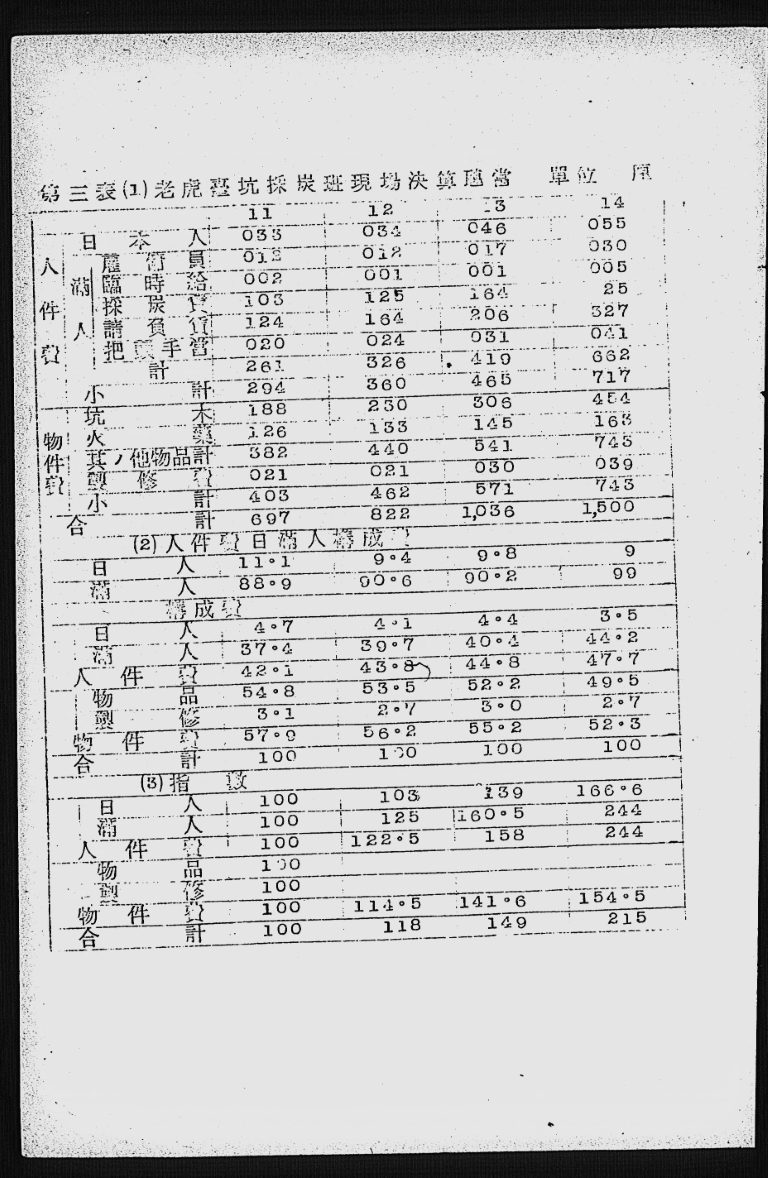 第三表(1)老虎臺坑採炭班現場決算噸當 單位 厘
11 12 13 14
日本人 033 034 046 055
人件費 滿人 傭員 013 012 017 030
臨時給 002 001 001 005
採炭賃 103 125 164 25
請負賃 124 164 206 327
把頭手當 020 024 031 041
計 261 326 419 662
小計 294 360 465 717
物件費 坑木 188 230 306 454
火藥 126 133 145 163
其ノ他物品計 382 440 541 743
製修費 021 021 030 039
小計 403 462 571 743
合計 697 822 1,036 1,500
(2)人件費日滿人構成
日人 11.1 9.4 9.8 9
滿人 88.9 90.6 90.2 99
構成費
日人 4.7 4.1 4.4 3.5
滿人 37.4 39.7 40.4 44.2
人件費 42.1 43.8 44.8 47.7
物品 54.8 53.5 52.2 49.5
製修 3.1 2.7 3.0 2.7
物件費 57.9 56.2 55.2 52.3
合計 100 100 100 100
(3)指數
日人 100 103 139 166.6
滿人 100 125 160.5 244
人件費 100 122.5 158 244
物品 100
製修 100
物件費 100 114.5 141.6 154.5
合計 100 118 149 215